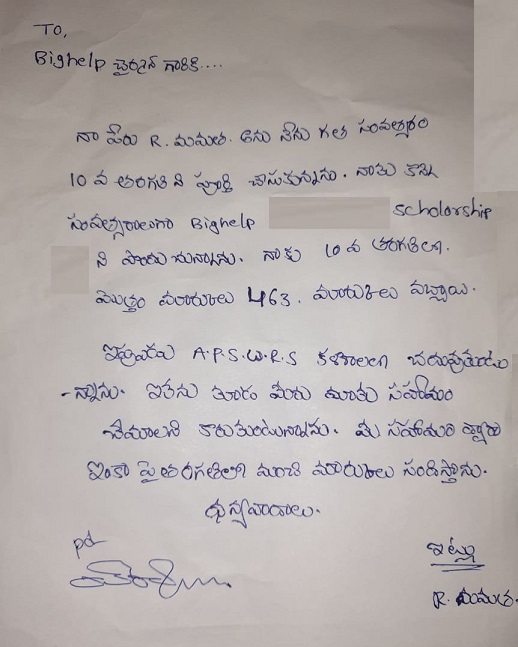 To,
Bighelp చైర్మన్ గారికి....
నా పేరు R. మమత. అను నేను గత సంవత్సరం
10 వ తరగతి ని పూర్తి చేసుకున్నాను. నాకు
సంవత్సరాలుగా Bighelp scholorship
ని పొందు చున్నాను. నాకు 10 వ తరగతిలో.
మొత్తం మారుకులు 463. మారుకులు వచ్చాయి.
ఇప్పుడు A.P.S.W.R.S కళాశాలలో చదువుతుంటు
-న్నాను. ఇతను కూడా మీరు మాకు సహాయం
చేయాలని కోరుకుంటున్నాను. మీ సహాయం ద్వారా
ఇంకా పై తరగతిలో మంచి మారుకులు సాధిస్తాను.
ధన్యవాదాలు.
ఇట్లు
R. మమత.